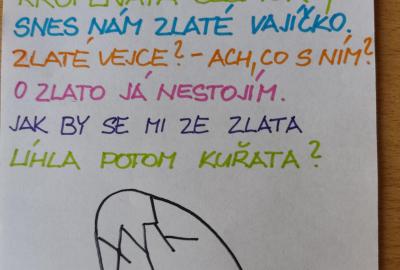 SNES NÁM ZLATÉ VAJÍČKO.
ZLATÉ VEJCE? - ACH, CO S NÍM?
O ZLATO JÁ NESTOJÍM.
JAK BY SE MI ZE ZLATA
LÍHLA POTOM KUŘATA?